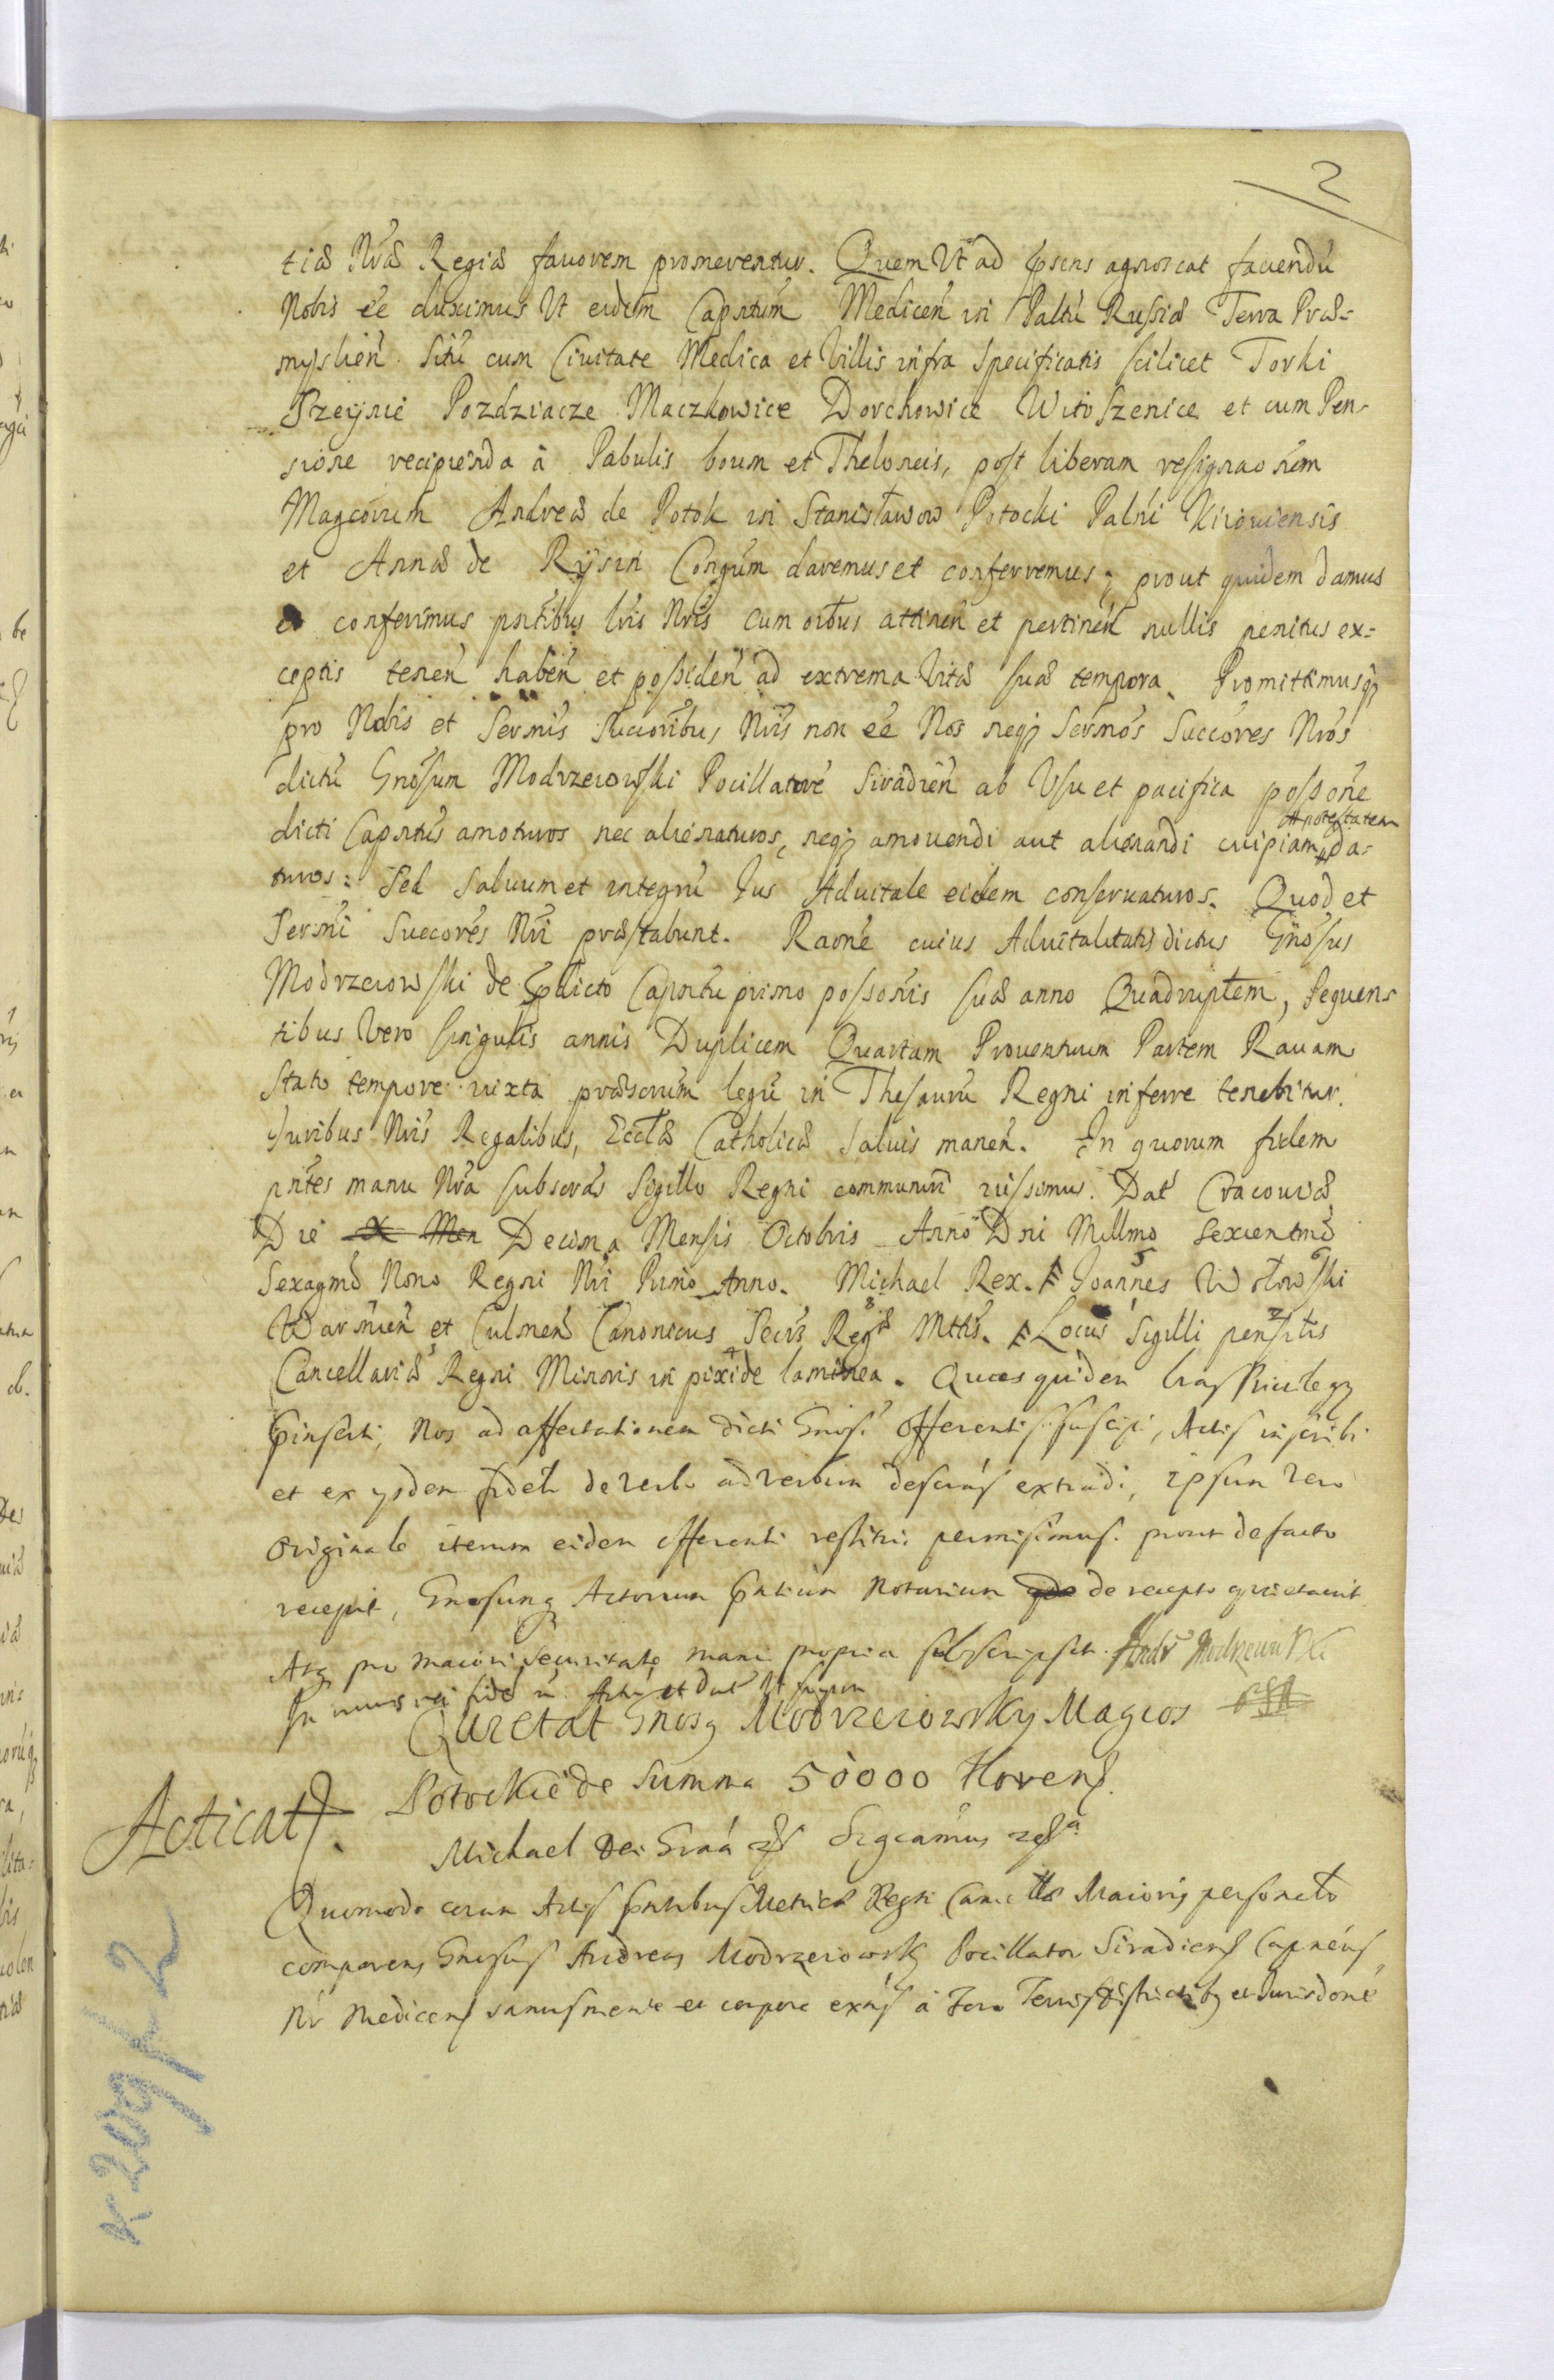 2
tiæ Nræ Regiæ fauorem promereantur. Quem Vt ad psens agnoscat faciendũ
Nobis ẽe duximus Vt eidem Capntum Medicen in Paltu Russiæ Terra Præ-
myslien Sitũ cum Ciuitate Medica et Villis infra Specificatis scilicet Torki
Pozdziacze Maczkowice Dorohowice Witoszenice et cum Pen-
sione recipienda à Pabulis boum et Theloneis, post liberam resignaonem
Magcorum Andreæ de Potok in Stanisławow Potocki Palni Kiiouiensis
et Annæ de Rysin Congum daremus et conferremus; prout quidem damus
et conferimus pntibus lris Nris cum oibus attinen et pertinen nullis penitus ex=
ceptis tenen haben et possiden ad extrema Vitæ suæ tempora. Promittimusq;
pro Nobis et Sermis Succoribus Nris non ẽe Nos neq; Sermos Succores Nros
dictũ Gnosum Modrzewski Pocillatore Siradien ab Vsu et pacifica possone
dicti Capntus amoturos nec alienaturos, neq; amouendi aut alienandi cuipiam # da-
# potestatem
turos: Sed Saluum et integrũ Jus Aduitale eidem conseruaturos. Quod et
Sermi Succores Nri præstabunt. Raone cuius Aduitalitatis dictus Gnosus
Modrzewski de pdicto Capntu primo possonis suæ anno Quadruplem, sequen-
tibus Vero singulis annis Duplicem Quartam Prouentuum Partem Rauam
Stato tempore iuxta præscrium legũ in Thesaurũ Regni inferre tenebitur.
Juribus Nris Regalibus, Ecclæ Catholicæ Saluis manen. In quorum fidem
pntes manu Nra subscras Sigillo Regni communiri iussimus. Dat Cracouiæ
Die X Men Decima Mensis Octobris Anno Dni Millmo Sexcentmo
Sexagmo Nono Regni Nri Primo Anno. Michael Rex. Joannes Wołowski
Warmien et Culmen Canonicus Secrs Regæ Mttis. Locus Sigilli pensilis
Cancellariæ Regni Minoris in pixide laminea. Quas quidem lras Priuilegy
pinserti, Nos ad affectationem dicti Gnosi Offerentis suscipi, Actis inscribi
et ex ysdem fideli de verbo ad verbum descras extradi, ipsum vero
Originale iterum eidem offerenti restitui permisimus. prout de facto
recepit, Gnosumq Actorum pntium Notarium de recepto quietauit.
Atq pro maiori securitate manu propria subscripsit. Andr Modrzewski
In cuius rei fide
Quietat Gnosq Modrzewsky Magcos
Potockie de Summa 50000 floren.
Acticat.
Michael Dei Graa Sigcamus
Quomodo coram Actis pntibus Metrices Regni Cancellæ Maioris personalr
comparens Gnosus Andreas Modrzewsky Pocillator Siradien Capneus
Nr Medicens sanus mente et corpore exns à foro Terris districtibq et Jurisdone
K 209/2